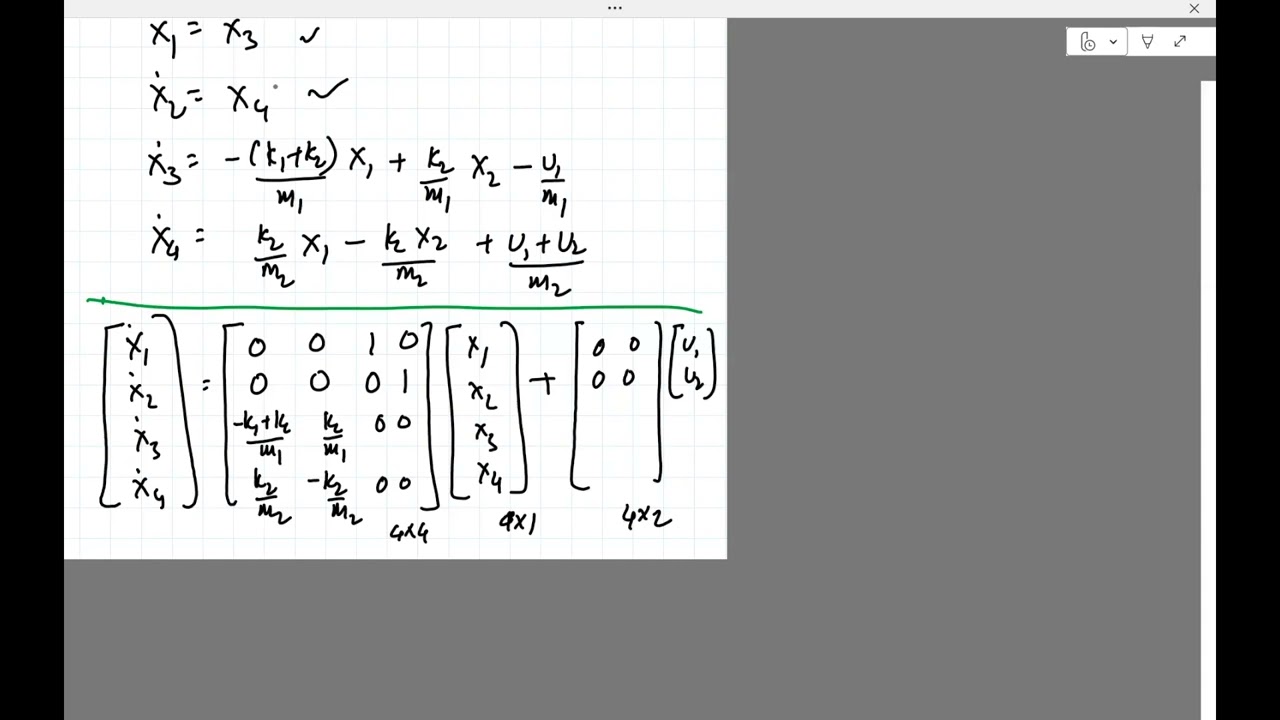 x₁ = x₃ ✓
ẋ₂ = x₄ ✓
ẋ₃ = -(k₁+k₂)/m₁ x₁ + k₂/m₁ x₂ - u₁/m₁
ẋ₄ = k₂/m₂ x₁ - k₂ x₂/m₂ + u₁ + u₂/m₂
[ẋ₁ ẋ₂ ẋ₃ ẋ₄] = [0 0 1 0; 0 0 0 1; -k₁+k₂/m₁ k₂/m₁ 0 0; k₂/m₂ -k₂/m₂ 0 0] [x₁ x₂ x₃ x₄] + [0 0; 0 0] [u₁ u₂]
4x4 4x1 4x2